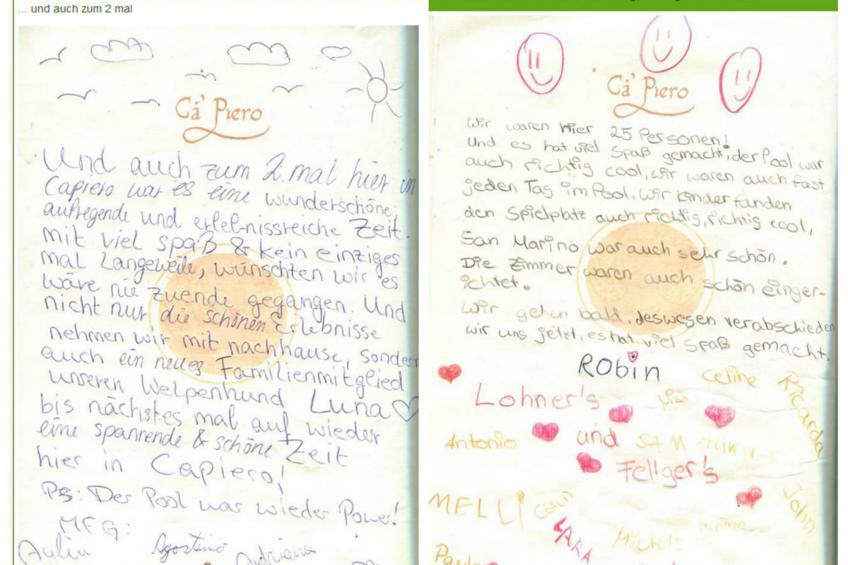 ... und auch zum 2 mal
Ca' Piero
Und auch zum 2. mal hier in
Capiero war es eine wunderschöne,
aufregende und erlebnissreiche Zeit.
mit viel spaß & kein einziges
mal Langeweile, wünschten wir es
wäre nie zuende gegangen. Und
nicht nur die schönen Erlebnisse
nehmen wir mit nachhause, sondern
auch ein neues Familienmitglied
unseren Welpenhund Luna
bis nächstes mal auf wieder
eine spannende & schöne Zeit
hier in Capiero!
Ps: Der Pool war wieder Power!
MFG:
Aylin Agostino Adriana
Ca' Piero
Wir waren hier 25 Personen!
Und es hat viel Spaß gemacht, der Pool war
auch richtig cool, wir waren auch fast
jeden Tag im Pool. Wir kinder fanden
den Spielplatz auch richtig, richtig cool,
San Marino war auch sehr schön.
Die Zimmer waren auch schön einger-
ichtet.
wir gehen bald, deswegen verabschieden
wir uns jetzt, es hat viel Spaß gemacht.
RObin
Celine Riccarda
Lohner's
Antonio und
Fellger's
MELLI Colin John
LARA